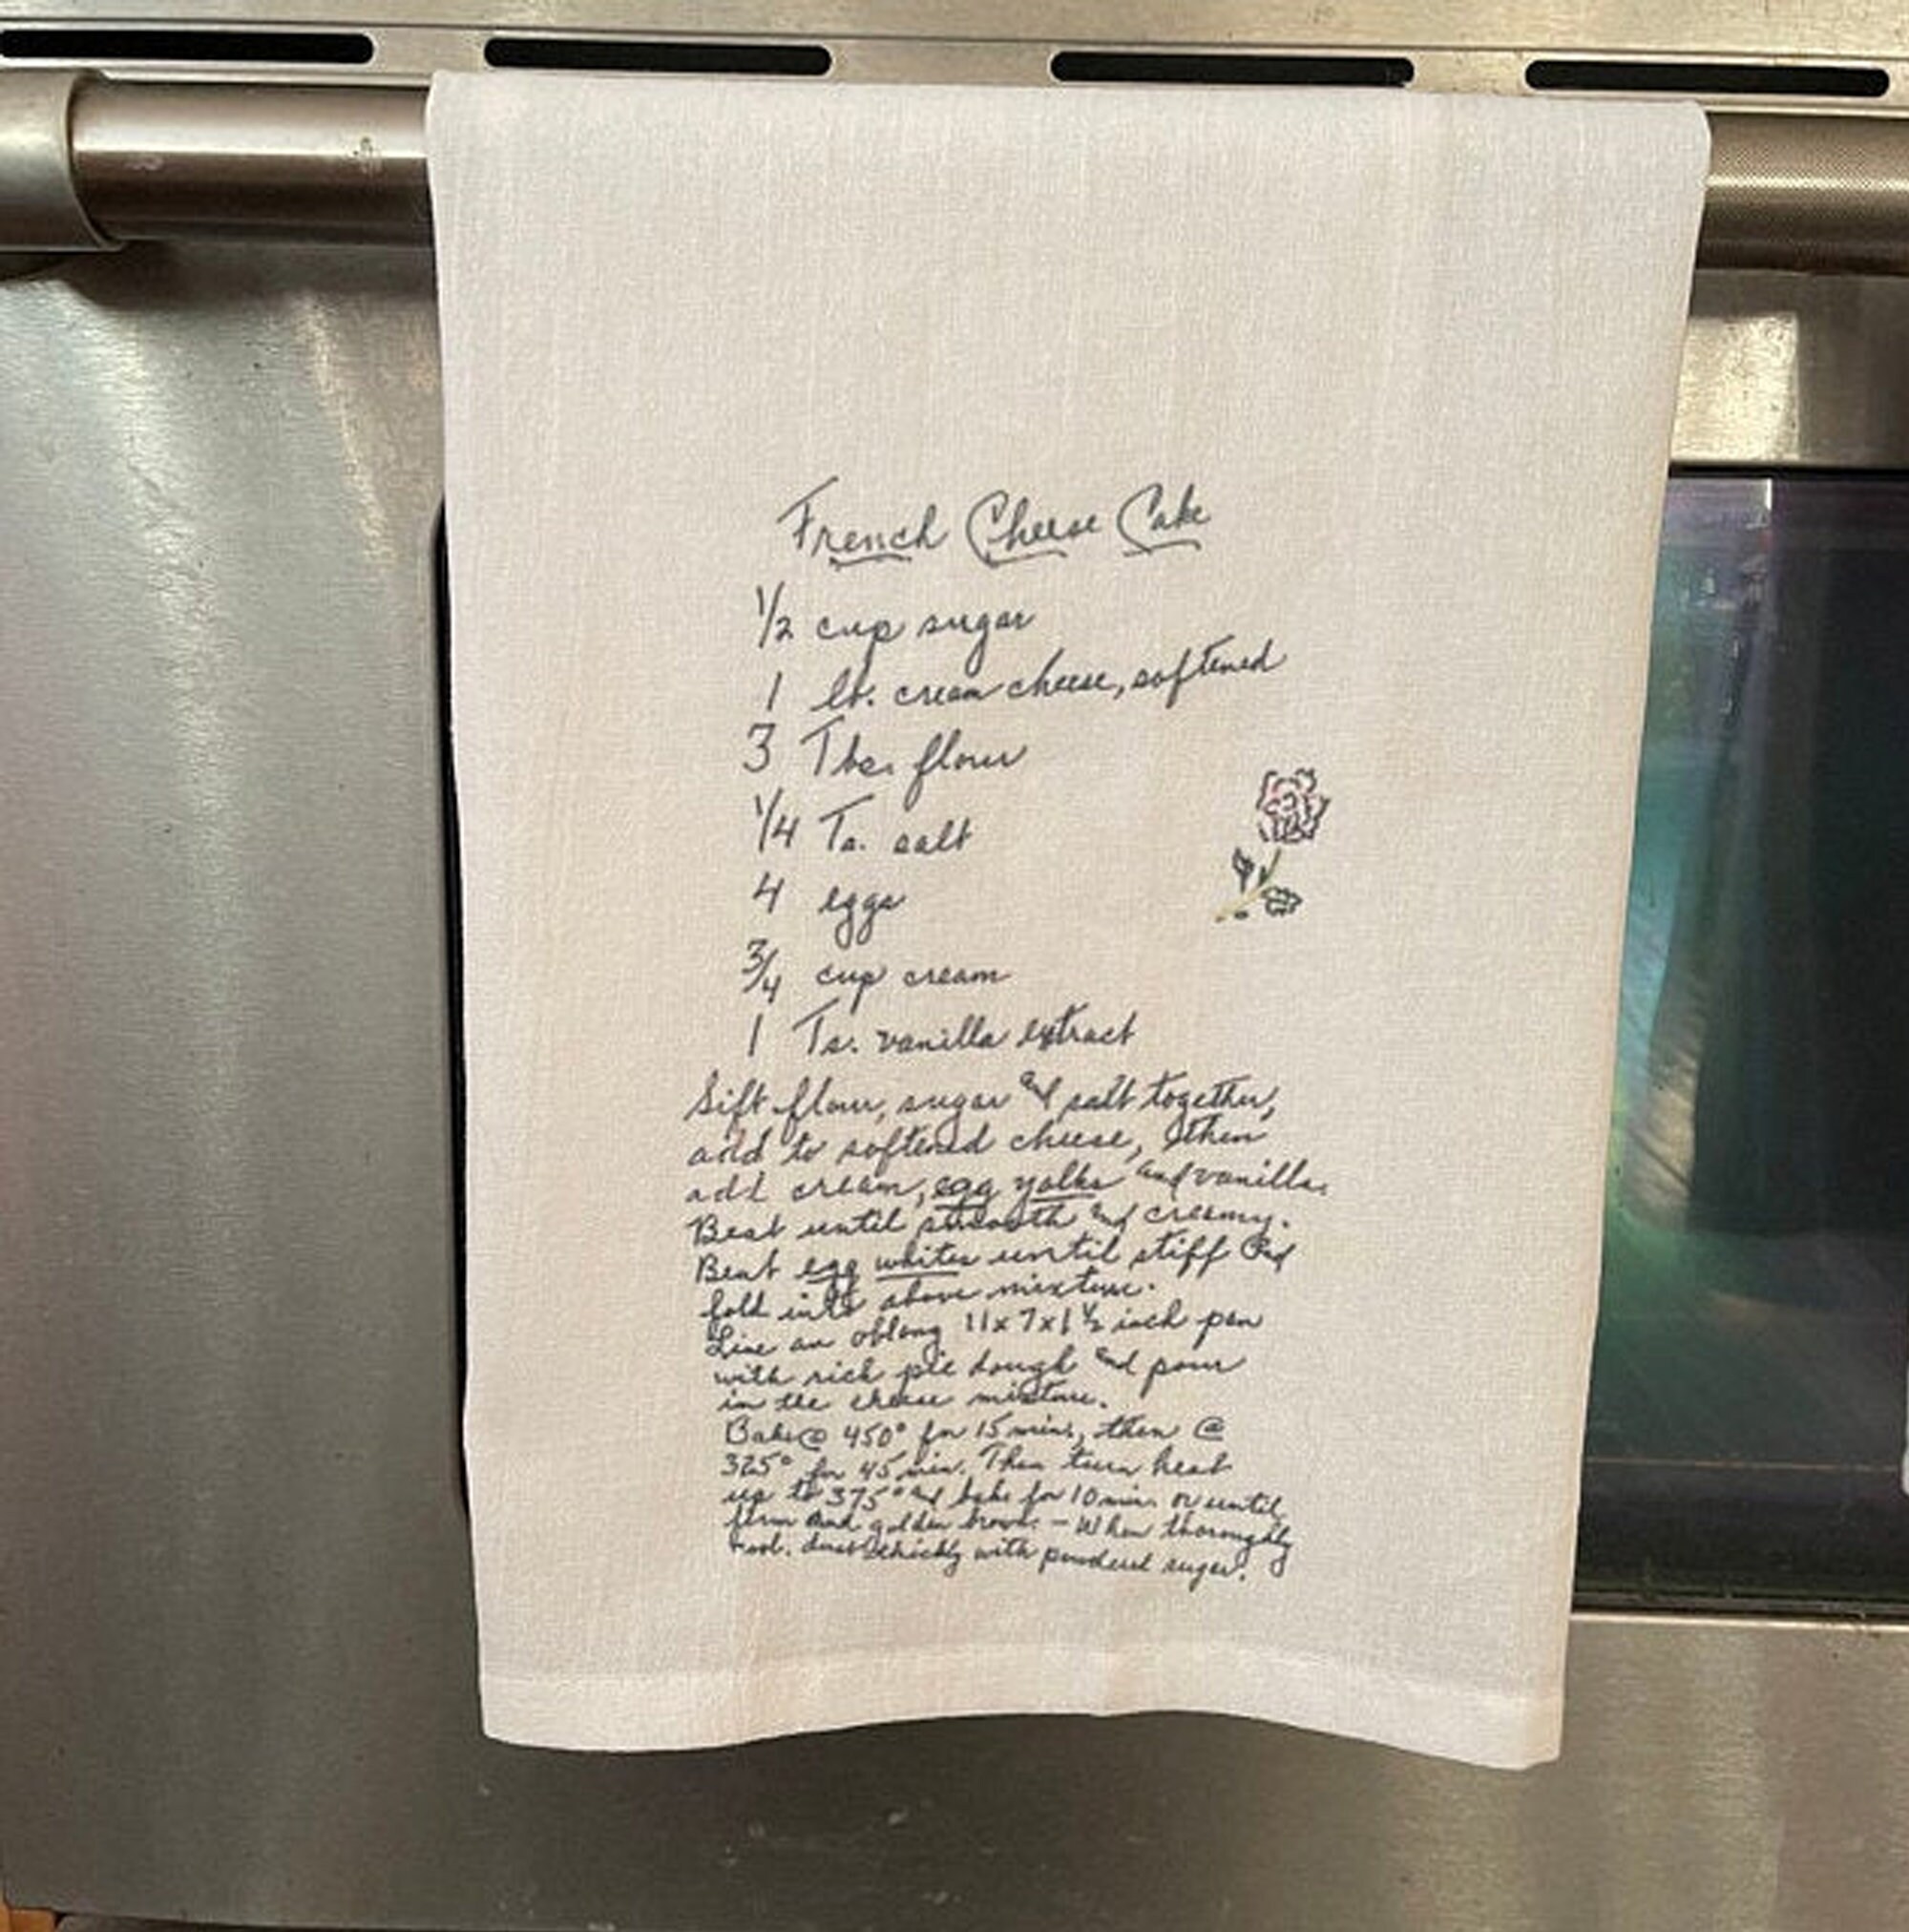 French Cheese Cake
1/2 cup sugar
1 lb. cream cheese, softened
3 Tbs. flour
1/4 Ts. salt
4 eggs
3/4 cup cream
1 Ts. vanilla extract
Sift flour, sugar and salt together,
add to softened cheese, then
add cream, egg yolks and vanilla.
Beat until smooth and creamy.
Beat egg whites until stiff and
fold into above mixture.
Line an oblong 11x7x1 1/2 inch pan
with rich pie dough and pour
in the cheese mixture.
Bake @ 450° for 15 mins, then @
325° for 45 min. Then turn heat
up to 375° and bake for 10 min. or until
firm and golden brown. - When thoroughly
cool, dust thickly with powdered sugar.